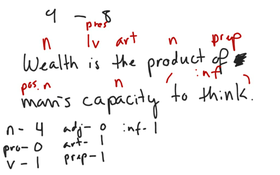 4 - 8
pres
n lv art n prep
Wealth is the product of
pos. n n ( inf )
man's capacity to think.
n - 4 adj - 0 inf - 1
pro - 0 art - 1
v - 1 prep - 1